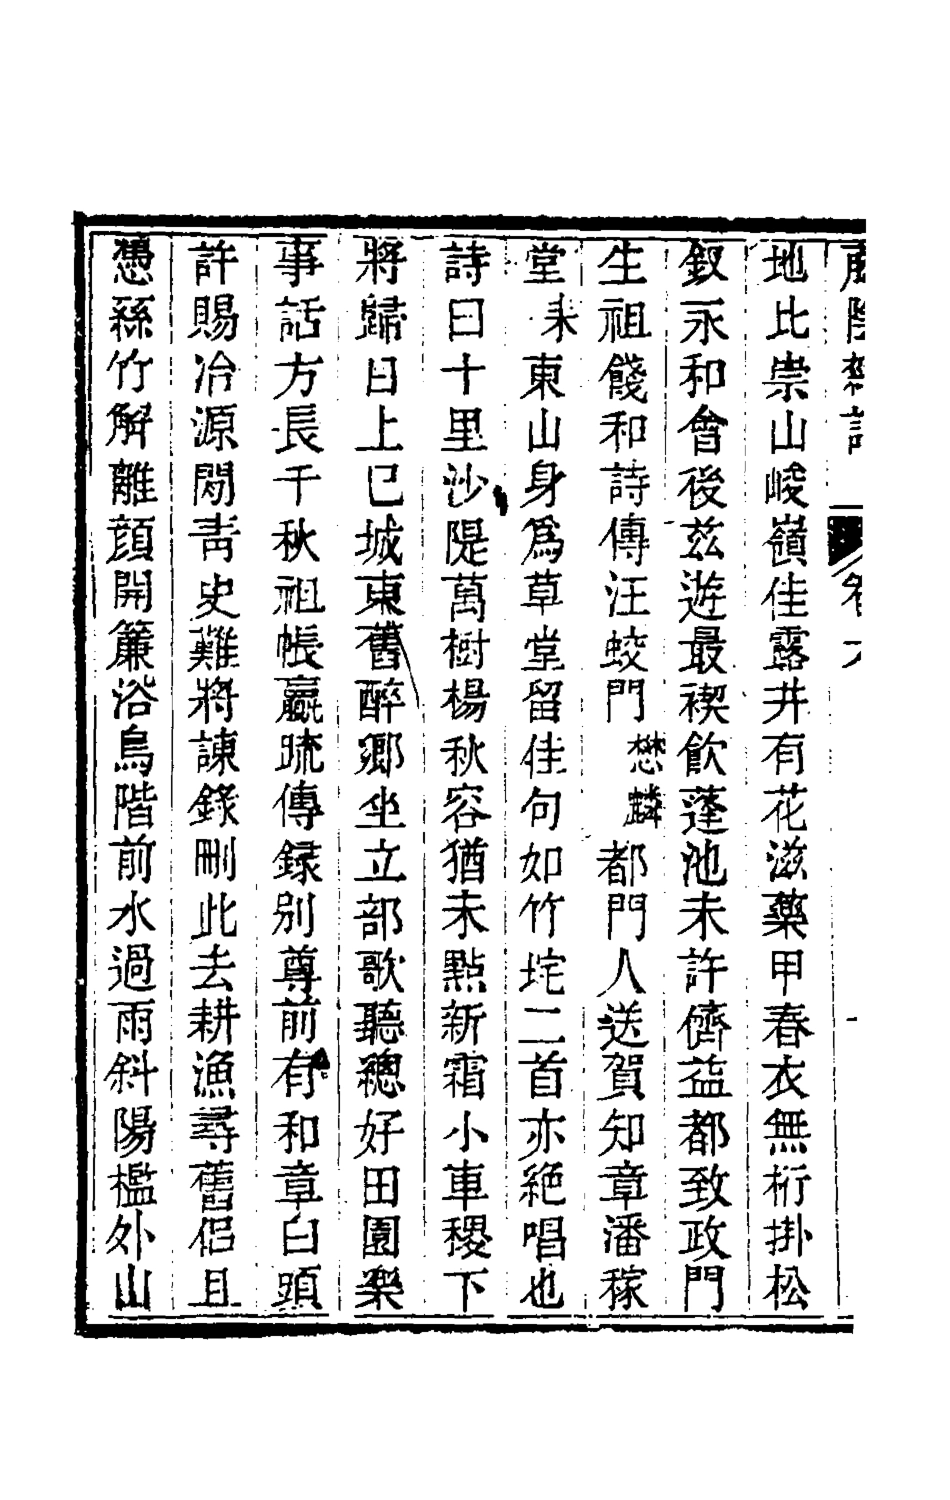 藤陰雜記　卷六
地比崇山峻嶺佳露井有花滋藥甲春衣無桁掛松
釵永和會後茲遊最禊飲蓬池未許儕益都致政門
生祖餞和詩傳汪蛟門懋麟都門人送賀知章潘稼
堂耒東山身爲草堂留佳句如竹垞二首亦絕唱也
詩曰十里沙隄萬樹楊秋容猶未點新霜小車稷下
將歸日上巳城東舊醉鄉坐立部歌聽總好田園樂
事話方長千秋祖帳嬴疏傳錄别尊前有和章白頭
許賜冶源閒青史難將諫錄刪此去耕漁尋舊侶且
憑絲竹解離顏開簾浴鳥階前水過雨斜陽檻外山